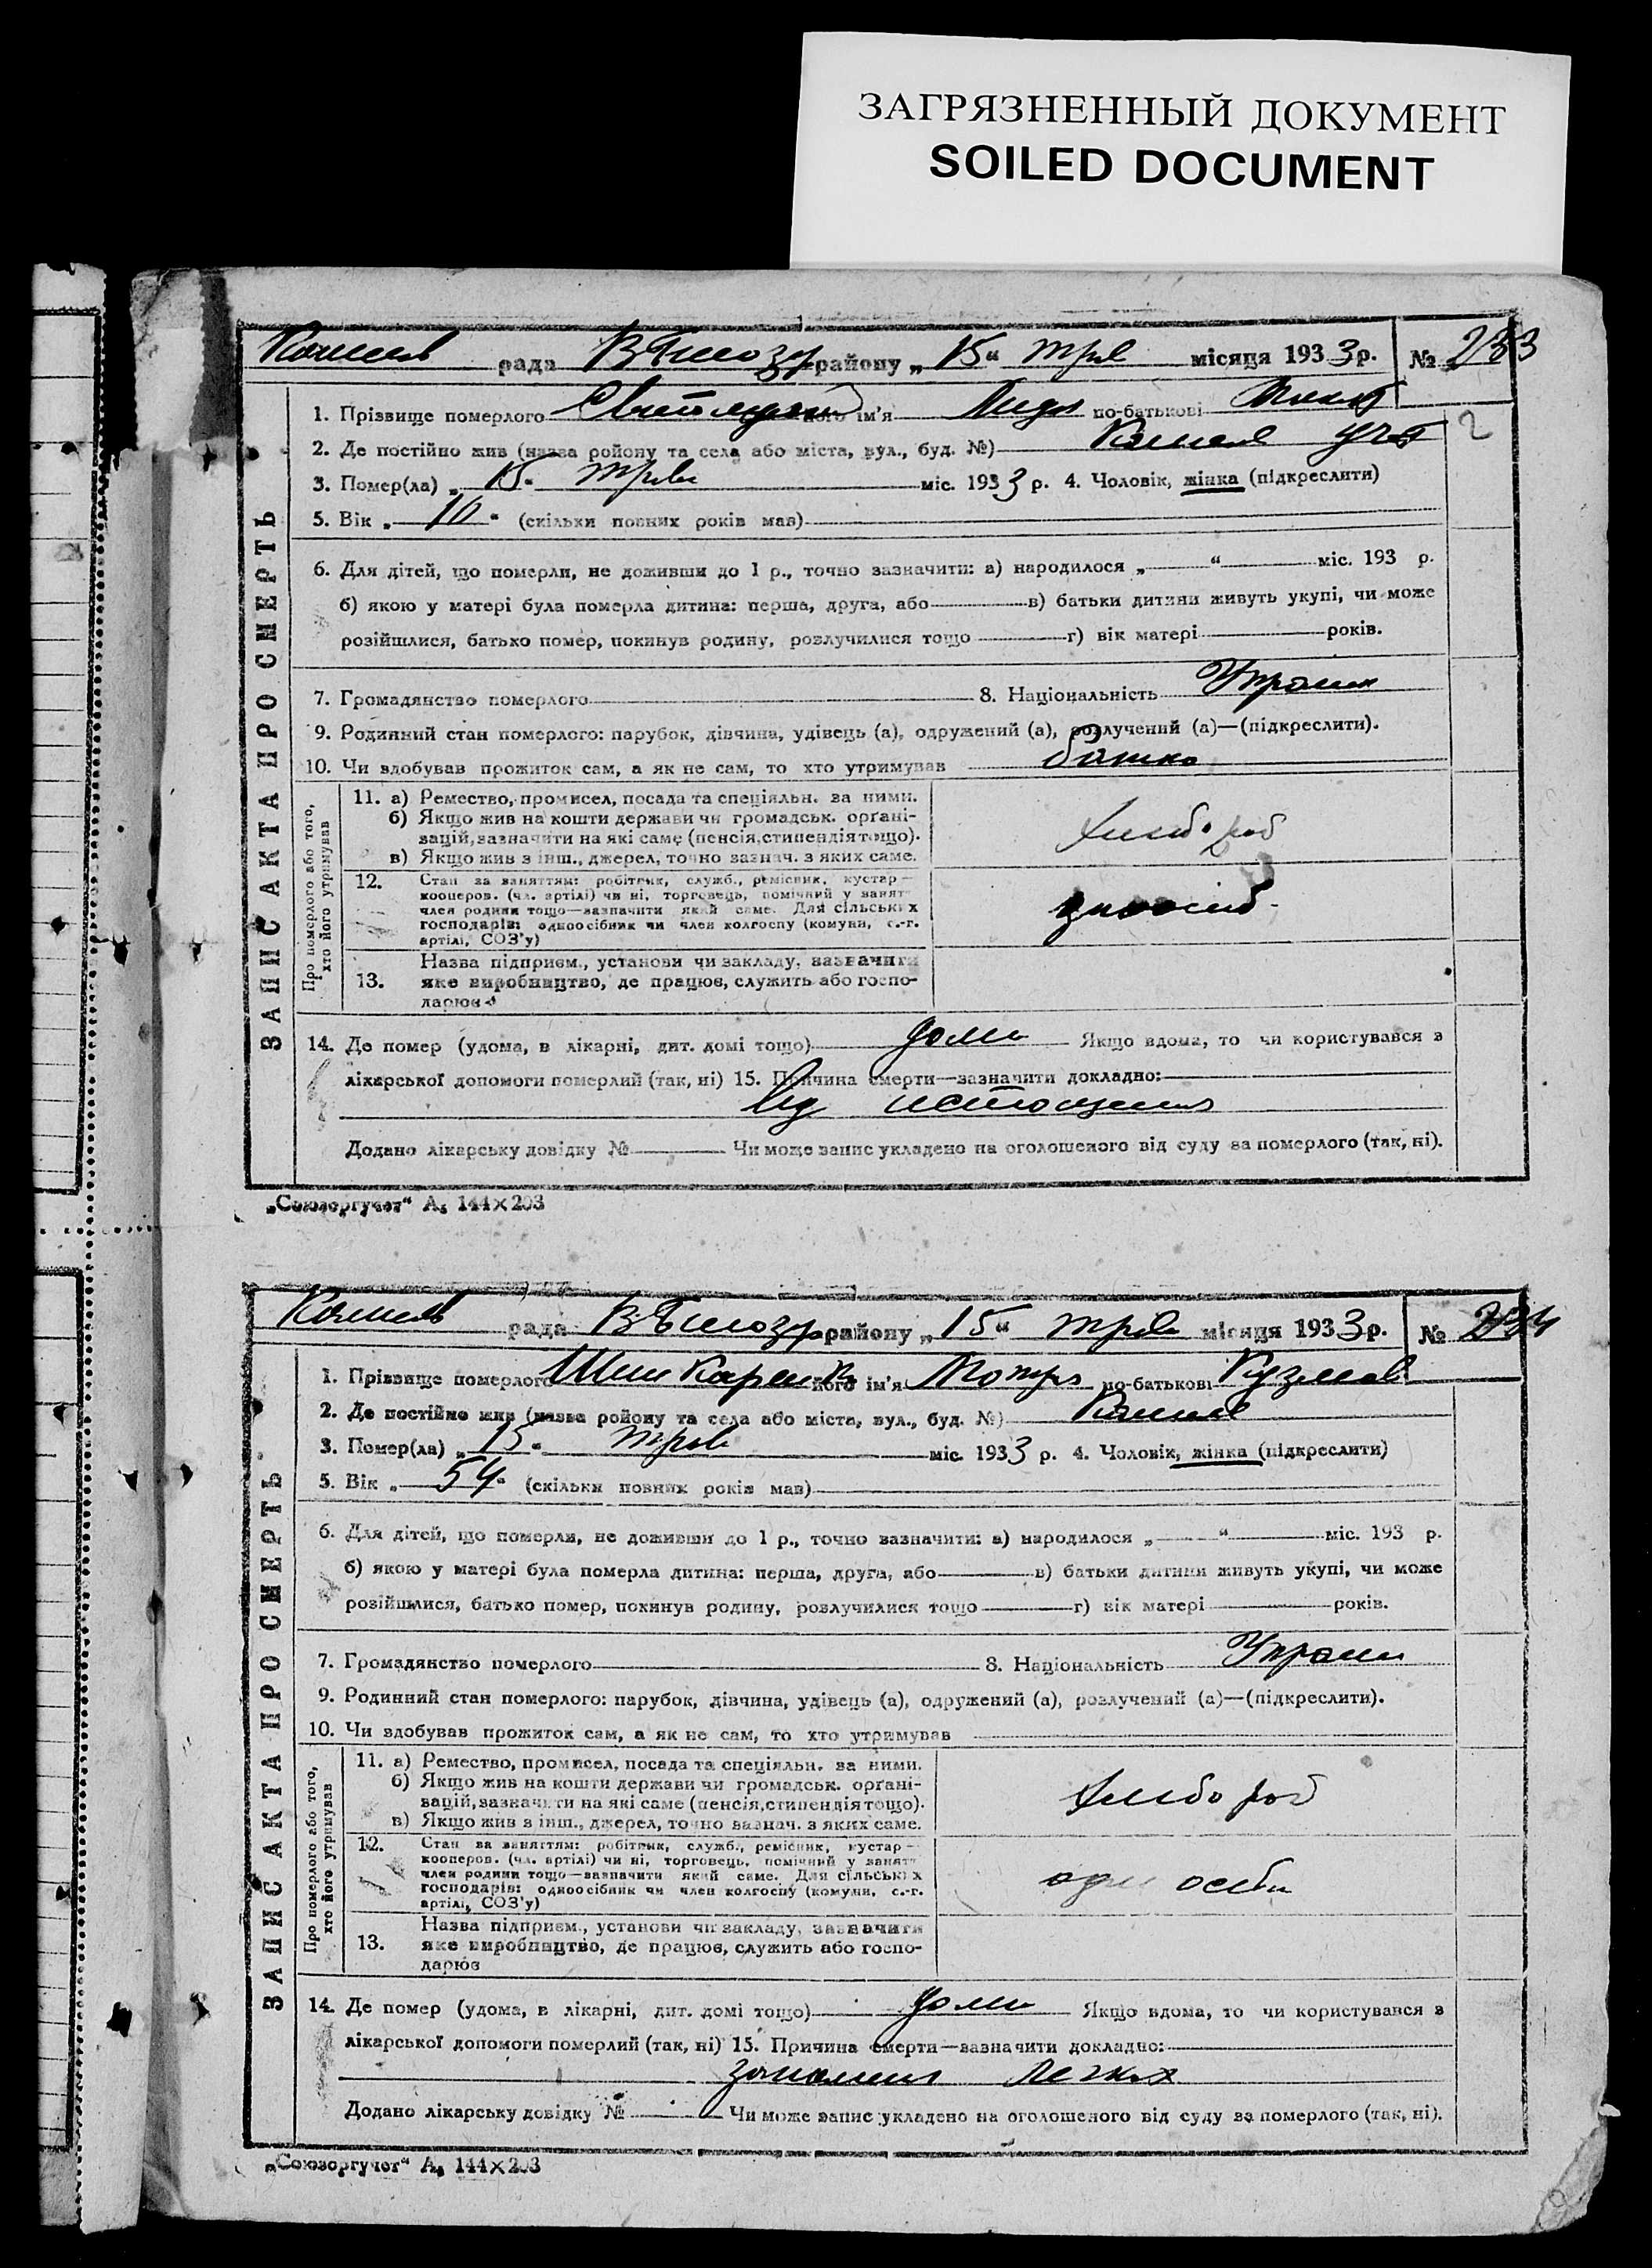 ЗАГРЯЗНЕННЫЙ ДОКУМЕНТ
SOILED DOCUMENT
рада В Білозер району „15“ трав місяця 1933 р. № 283
1. Прізвище померлого його ім'я Лидя по-батькові
2
2. Де постійно жив (назва ройону та села або міста, вул., буд. №)
3. Помер(ла) „15“ трав міс. 1933 р. 4. Чоловік, жінка (підкреслити)
5. Вік „10“ (скільки повних років мав)
6. Для дітей, що померли, не доживши до 1 р., точно зазначити: а) народилося „ “ міс. 193 р.
б) якою у матері була померла дитина: перша, друга, або в) батьки дитини живуть укупі, чи може
розійшлися, батько помер, покинув родину, розлучилися тощо г) вік матері років.
7. Громадянство померлого 8. Національність Украин
9. Родинний стан померлого: парубок, дівчина, удівець (а), одружений (а), розлучений (а)—(підкреслити).
10. Чи здобував прожиток сам, а як не сам, то хто утримував батько
ЗАПИС АКТА ПРО СМЕРТЬ
Про померлого або того, хто його утримував
11. а) Ремество, промисел, посада та спеціяльн. за ними.
б) Якщо жив на кошти держави чи громадськ. орґані-
зацій, зазначити на які саме (пенсія, стипендія тощо).
в) Якщо жив з інш., джерел, точно зазнач. з яких саме.
хлібороб
12. Стан за заняттям: робітник, служб., ремісник, кустар—
кооперов. (чл. артілі) чи ні, торговець, помічний у занят
член родини тощо—зазначити який саме. Для сільських
господарів: одноосібник чи член колгоспу (комуни, с.-г.
артілі, СОЗ'у)
13. Назва підприєм., установи чи закладу, зазначити
яке виробництво, де працює, служить або госпо-
дарює
14. Де помер (удома, в лікарні, дит. домі тощо) дома Якщо вдома, то чи користувався з
лікарської допомоги померлий (так, ні) 15. Причина смерти—зазначити докладно:
Від истощения
Додано лікарську довідку № Чи може запис укладено на оголошеного від суду за померлого (так, ні).
„Союзоргучет“ А₅ 144×203
рада В Білозер району „15“ трав місяця 1933 р. № 284
1. Прізвище померлого Шинкаренко його ім'я Мотря по-батькові Кузмов
2. Де постійно жив (назва ройону та села або міста, вул., буд. №)
3. Помер(ла) „15“ трав міс. 1933 р. 4. Чоловік, жінка (підкреслити)
5. Вік „54“ (скільки повних років мав)
6. Для дітей, що померли, не доживши до 1 р., точно зазначити: а) народилося „ “ міс. 193 р.
б) якою у матері була померла дитина: перша, друга, або в) батьки дитини живуть укупі, чи може
розійшлися, батько помер, покинув родину, розлучилися тощо г) вік матері років.
7. Громадянство померлого 8. Національність Украин
9. Родинний стан померлого: парубок, дівчина, удівець (а), одружений (а), розлучений (а)—(підкреслити).
10. Чи здобував прожиток сам, а як не сам, то хто утримував
ЗАПИС АКТА ПРО СМЕРТЬ
Про померлого або того, хто його утримував
11. а) Ремество, промисел, посада та спеціяльн. за ними.
б) Якщо жив на кошти держави чи громадськ. орґані-
зацій, зазначити на які саме (пенсія, стипендія тощо).
в) Якщо жив з інш., джерел, точно зазнач. з яких саме.
хлібороб
12. Стан за заняттям: робітник, служб., ремісник, кустар—
кооперов. (чл. артілі) чи ні, торговець, помічний у занят
член родини тощо—зазначити який саме. Для сільських
господарів: одноосібник чи член колгоспу (комуни, с.-г.
артілі, СОЗ'у)
одноосібн
13. Назва підприєм., установи чи закладу, зазначити
яке виробництво, де працює, служить або госпо-
дарює
14. Де помер (удома, в лікарні, дит. домі тощо) дома Якщо вдома, то чи користувався з
лікарської допомоги померлий (так, ні) 15. Причина смерти—зазначити докладно:
запалення легких
Додано лікарську довідку № Чи може запис укладено на оголошеного від суду за померлого (так, ні).
„Союзоргучет“ А₅ 144×203